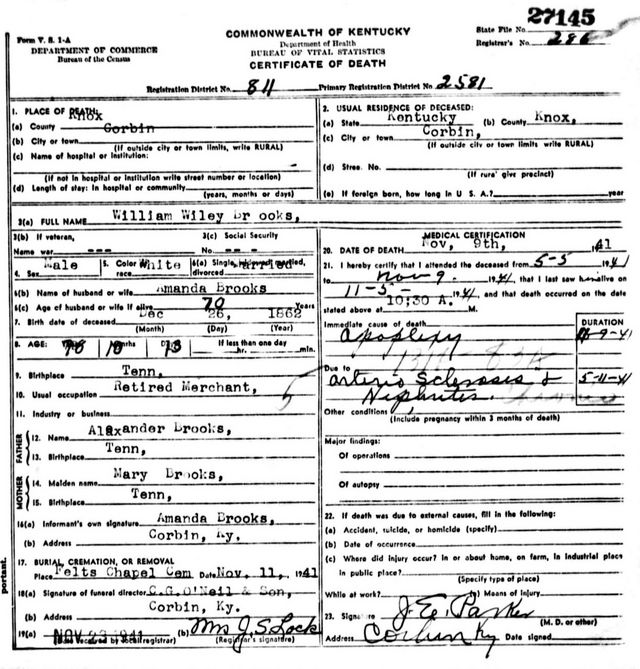 27145
Form V. S. 1-A
DEPARTMENT OF COMMERCE
Bureau of the Census
COMMONWEALTH OF KENTUCKY
Department of Health
BUREAU OF VITAL STATISTICS
CERTIFICATE OF DEATH
State File No.
Registrar's No. 286
Registration District No. 811 Primary Registration District No. 2581
1. PLACE OF DEATH:
(a) County Knox
(b) City or town Corbin
(If outside city or town limits, write RURAL)
(c) Name of hospital or institution:
(If not in hospital or institution write street number or location)
(d) Length of stay: In hospital or community
(years, months or days)
2. USUAL RESIDENCE OF DECEASED:
(a) State Kentucky (b) County Knox,
(c) City or town Corbin,
(If outside city or town limits, write RURAL)
(d) Street No.
(If rural give precinct)
(e) If foreign born, how long in U. S. A.? year
3(a) FULL NAME William Wiley Brooks,
3(b) If veteran,
Name war ---
3(c) Social Security
No. ---
4. Sex Male 5. Color or race White 6(a) Single, widowed, married, divorced Married
6(b) Name of husband or wife Amanda Brooks
6(c) Age of husband or wife if alive 70 Years
7. Birth date of deceased Dec 26, 1862
(Month) (Day) (Year)
8. AGE: 78 10 13 If less than one day
hr. min.
9. Birthplace Tenn,
10. Usual occupation Retired Merchant,
11. Industry or business
FATHER
12. Name Alaxander Brooks,
13. Birthplace Tenn,
MOTHER
14. Maiden name Mary Brooks,
15. Birthplace Tenn,
16(a) Informant's own signature Amanda Brooks,
(b) Address Corbin, Ky.
17. BURIAL, CREMATION, OR REMOVAL
Place Felts Chapel Cem Date Nov. 11, 1941
18(a) Signature of funeral director C.G.O'Neil & Son,
(b) Address Corbin, Ky.
19(a) NOV 23 1941 (b) Mrs J. S. Lock
(Date received by local registrar) (Registrar's signature)
portant.
MEDICAL CERTIFICATION
20. DATE OF DEATH Nov, 9th, 41
21. I hereby certify that I attended the deceased from 5-5 1941
to Nov 9 1941, that I last saw him alive on
11-5- 1941, and that death occurred on the date
stated above at 10:30 A. M.
Immediate cause of death
Apoplexy
DURATION
11-9-41
Due to
Arterio Sclerosis &
Nephrites
5-11-41
Other conditions
(Include pregnancy within 3 months of death)
Major findings:
Of operations
Of autopsy
22. If death was due to external causes, fill in the following:
(a) Accident, suicide, or homicide (specify)
(b) Date of occurrence
(c) Where did injury occur? in or about home, on farm, in industrial place
in public place?
(Specify type of place)
While at work? (e) Means of injury
23. Signature J. E. Parker
(M. D. or other)
Address Corbin Ky Date signed